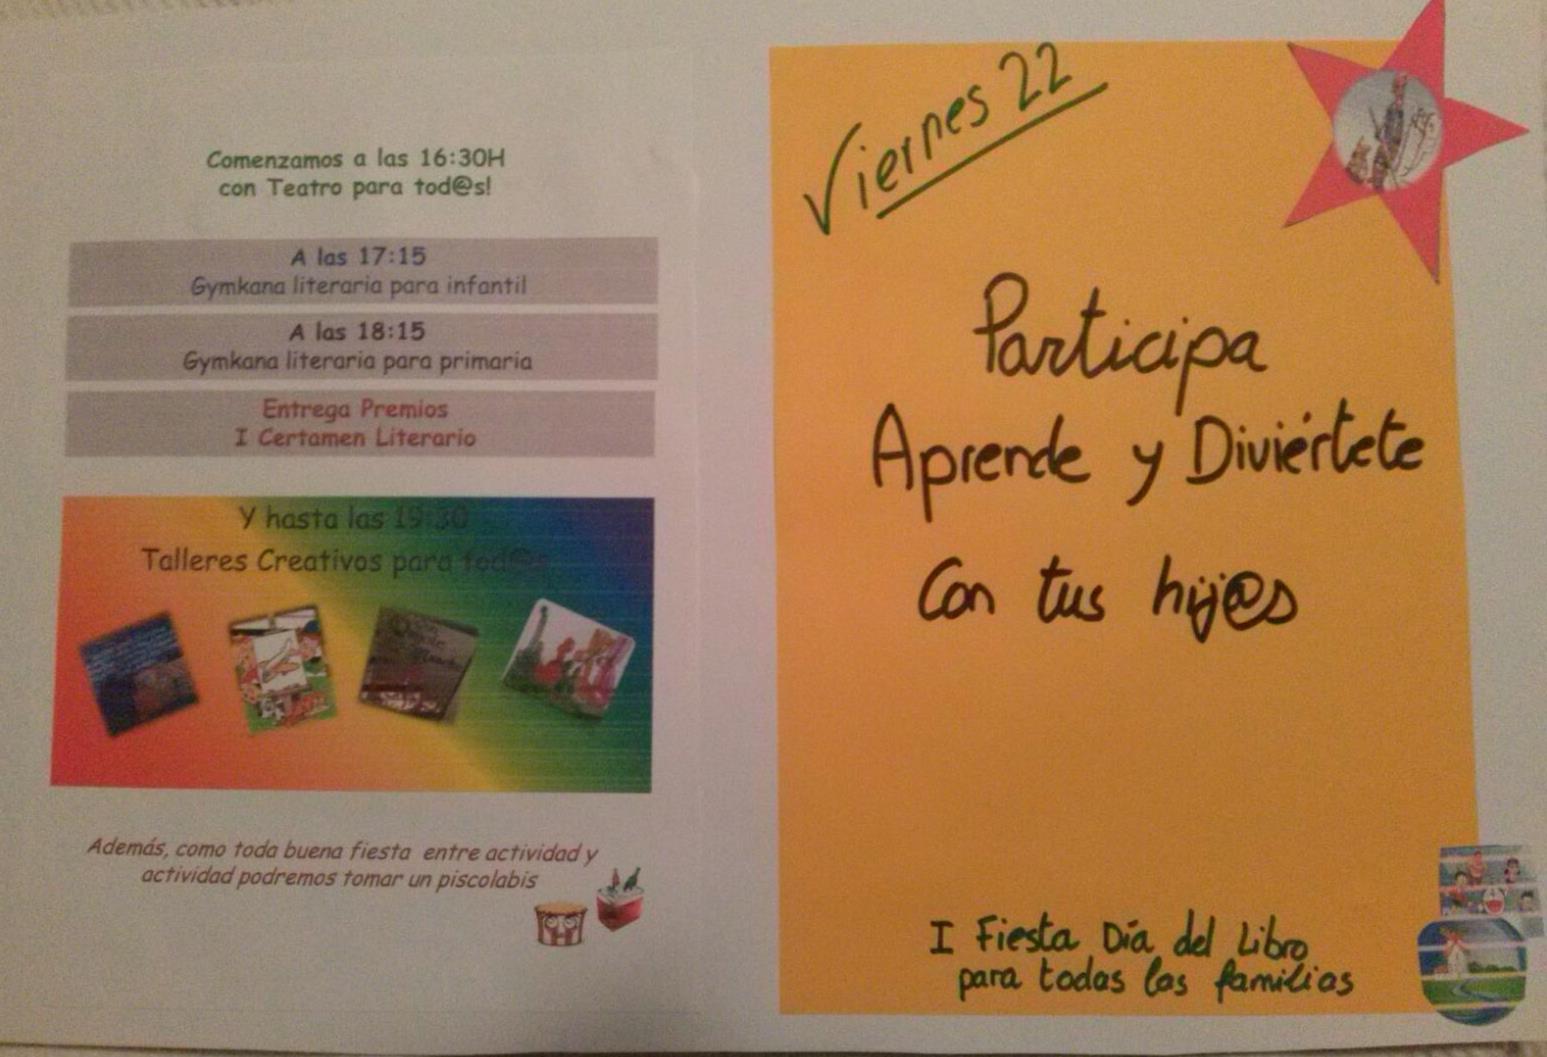 Comenzamos a las 16:30H
con Teatro para tod@s!
A las 17:15
Gymkana literaria para infantil
A las 18:15
Gymkana literaria para primaria
Entrega Premios
I Certamen Literario
Y hasta las 19:30
Talleres Creativos para tod@s
Además, como toda buena fiesta entre actividad y
actividad podremos tomar un piscolabis
Viernes 22
Participa
Aprende y Diviértete
Con tus hij@s
I Fiesta Día del Libro
para todas las familias